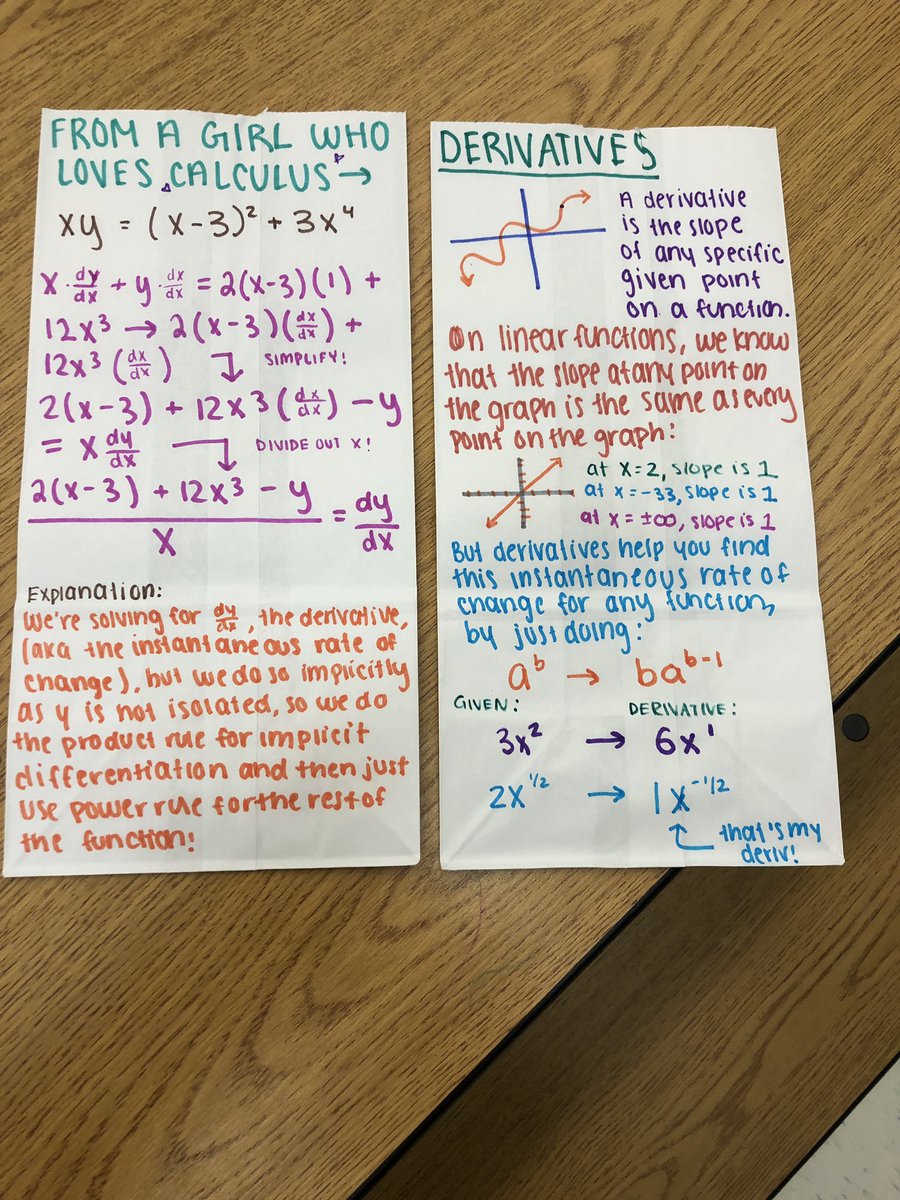 FROM A GIRL WHO
LOVES CALCULUS →
xy = (x-3)² + 3x⁴
x · dy/dx + y · dx/dx = 2(x-3)(1) +
12x³ → 2(x-3)(dx/dx) +
12x³ (dx/dx) SIMPLIFY!
2(x-3) + 12x³(dx/dx) - y
= x dy/dx DIVIDE OUT X!
2(x-3) + 12x³ - y
x
= dy/dx
Explanation:
We're solving for dy/dx, the derivative,
(aka the instantaneous rate of
change), but we do so implicitly
as y is not isolated, so we do
the product rule for implicit
differentiation and then just
use power rule for the rest of
the function!
DERIVATIVES
A derivative
is the slope
of any specific
given point
on a function.
On linear functions, we know
that the slope at any point on
the graph is the same as every
point on the graph:
at x=2, slope is 1
at x=-33, slope is 1
at x = ±∞, slope is 1
But derivatives help you find
this instantaneous rate of
change for any function,
by just doing:
aᵇ → baᵇ⁻¹
GIVEN: DERIVATIVE:
3x² → 6x¹
2x^1/2 → 1x^-1/2
that's my
deriv!